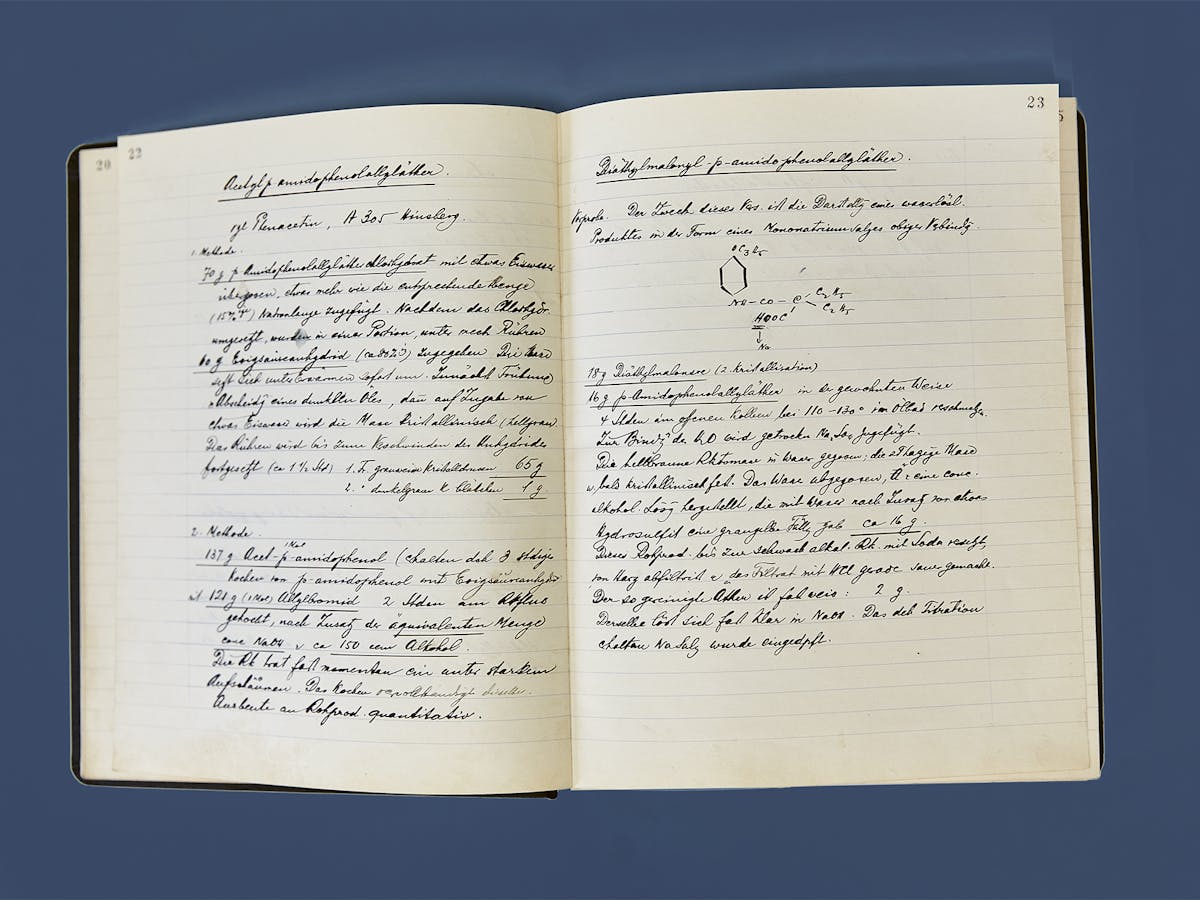 20
22
Acetyl p amidophenolallyläther.
vgl Phenacetin, A 305 Hinsberg.
1. Methode.
70 g p Amidophenolallylätherchlorhydrat mit etwas Eiswasser
übergossen, etwas mehr wie die entsprechende Menge
(15%ge) Natronlauge zugefügt. Nachdem das Chlorhydr.
umgesetzt, wurden in einer Portion, unter Rühren
60 g Essigsäureanhydrid (ca 80%) zugegeben. Die Masse
setzt sich unter Erwärmen sofort um. Zunächst Trübung
Abscheidg eines dunklen Öles, dann auf Zugabe von
etwas Eiswasser wird die Masse kristallinisch (hellgrau)
Das Rühren wird bis zum Verschwinden des Anhydrids
fortgesetzt (ca 1½ Std) 1. Fr. grauweisse Kristallmasse 65 g
2. " dunkelgraue Blättchen 1 g
2. Methode.
(1 Mol)
137 g Acet-p-amidophenol (erhalten dch 3 stdiges
Kochen von p-amidophenol mit Essigsäureanhydrid
mit 121 g (1 Mol) Allylbromid 2 Stden am Rkfluss
gekocht, nach Zusatz der äquivalenten Menge
conc NaOH u ca 150 ccm Alkohol.
Die Rk trat fast momentan ein unter starkem
Aufschäumen. Das Kochen vervollständigte dieselbe.
Ausbeute an Rohprod. quantitativ.
23
Diäthylmalonyl-p-amidophenolallyläther.
Vorprobe. Der Zweck dieses Vers. ist die Darstellg eines wasserlösl.
Produktes in der Form eines Mononatriumsalzes obiger Verbindg.
OC3H5
NH - CO - C
C2H5
C2H5
HOOC
Na
18 g Diäthylmalonsre (2. Kristallisation)
16 g p-Amidophenolallyläther in der gewohnten Weise
4 Stden im offenen Kolben bei 110-130° im Ölbad verschmolz.
Zur Bindg des H2O wird getrockn Na2SO4 zugefügt.
Die hellbraune Rktsmasse in Wasser gegossen; die Masse
w. bald kristallinisch fest. Das Wasser abgegossen, eine conc.
alkohol. Lösg hergestellt, die mit Wasser nach Zusatz von etwas
Hydrosulfit eine graugelbe Fällg gab ca 16 g.
Dieses Rohprod. bis zur schwach alkal. Rk. mit Soda versetzt,
von Harz abfiltrirt u das Filtrat mit HCl gerade sauer gemacht.
Der so gereinigte Äther ist fast weiss: 2 g.
Derselbe löst sich fast klar in NaOH. Das dch Titration
erhaltene Na Salz wurde eingedpft.